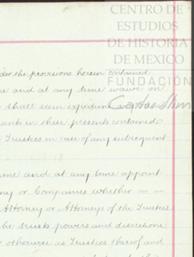 CENTRO DE
ESTUDIOS
DE HISTORIA
DE MEXICO
FUNDACIÓN
Carlos Slim
under the provisions herein contained
and at any time waive or
shall seem expedient
in their presents contained
Trustees in case of any subsequent
time and at any time appoint
or Companies whether
Attorney or Attorneys of the Trustees
the trusts powers and discretions
otherwise as Trustees thereof and